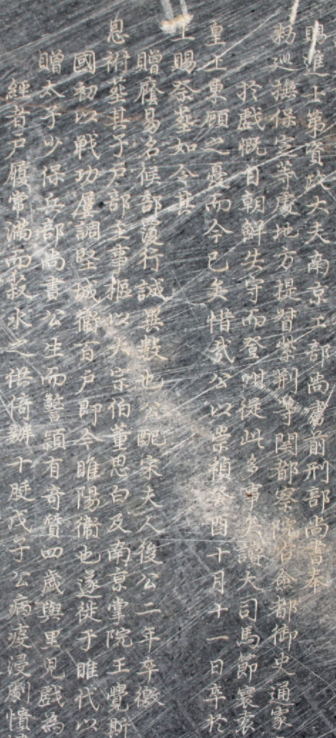 賜進士第資政大夫南京工部尚書前刑部尚書奉
勑巡撫保定等處地方提督紫荊等關都察院右僉都御史通家
於戲慨自朝鮮失守而登啣從此多事矣大司馬節寰袁
皇上東顧之憂而今已矣惜哉公以崇禎癸酉十月十一日卒於
上賜祭塟如令甲
贈廕易名候部覆行誠異數也公配宋夫人後公二年卒
息術塟其子戶部主事樞以大宗伯董思白及南京掌院王覺斯
國初以戰功屢調堅城衛百戶即今睢陽衛也遂徙于睢代以
贈太子少保兵部尚書公生而塾頴有奇質四歲與里兒戲為
經者戶屨常滿而菽水之供倚辦十脡戊子公病疫浸劇憒